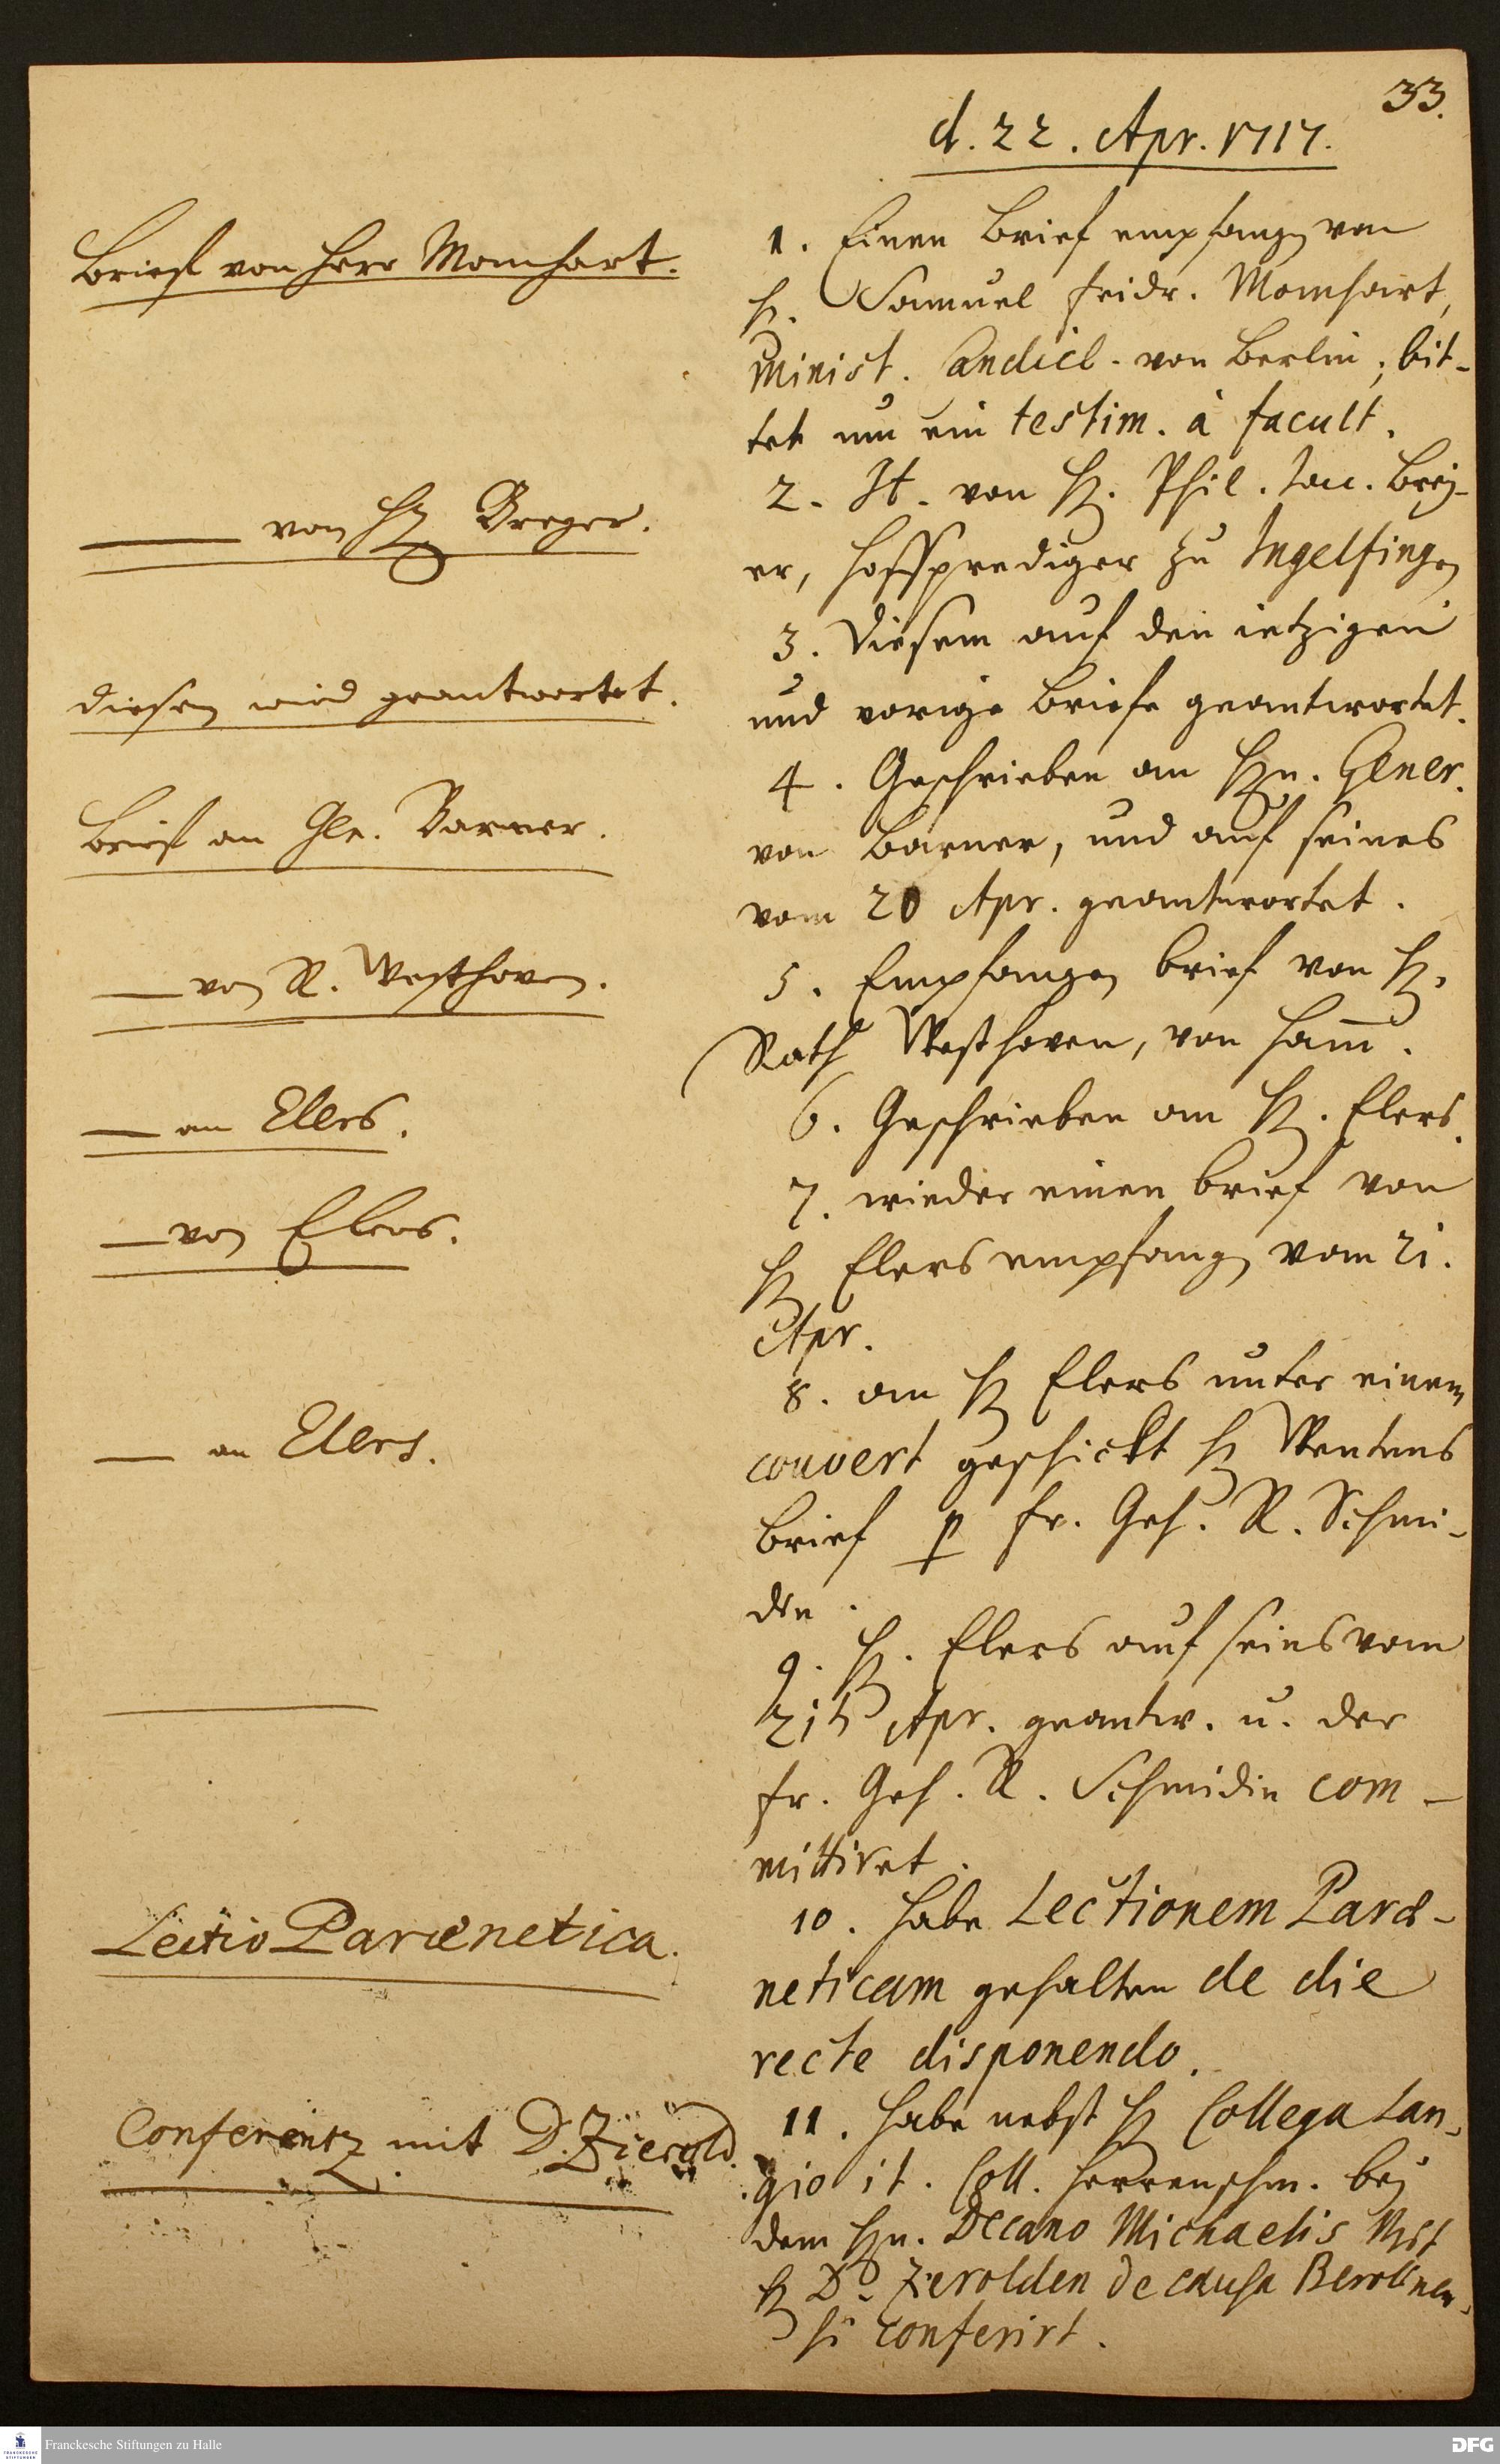 33.
d. 22. Apr. 1717.
Brief von Herr Momhart.
1. Einen Brief empfangen von
H. Samuel Fridr. Momhart,
Minist. Candid. von Berlin; bit-
tet um ein testim. à facult.
—— von H. Breyer.
2. It. von H. Phil. Jac. Brey-
er, Hoffprediger zu Ingelfingen
diesen wird geantwortet.
3. Diesem auf den ietzigen
und vorige Briefe geantwortet.
Brief an Gle. Barner.
4. Geschrieben an Hn. Gener.
von Barner, und auf seines
vom 20 Apr. geantwortet.
— von R. Westhoven.
5. Empfangen Brief von H.
Rath Westhoven, von Ham̄.
— an Elers.
6. Geschrieben an H. Elers.
— von Elers.
7. wieder einen Brief von
H Elers empfangen vom 21.
Apr.
— an Elers.
8. an H Elers unter einem
couvert geschickt H
Brief p Fr. Geh. R. Schmi-
din.
9. H. Elers auf seines vom
21t Apr. geantw. u. der
Fr. Geh. R. Schmidin com-
mittiret.
Lectio Parænetica.
10. Habe Lectionem Paræ-
neticam gehalten de die
recte disponendo.
Conferentz mit D. Zierold.
11. Habe nebst H Collega Lan-
gio it. Coll. Herrenschm. bey
dem Hn. Decano Michaelis mit
H D. Zierolden de causa Berolinen-
si conferirt.
Franckesche Stiftungen zu Halle
DFG